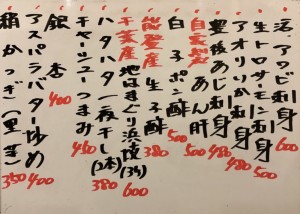 活アワビ刺身 600
生トロサーモン刺身 480
アオリいか刺身 480
豊後あじ刺身 500
自家製 あん肝 500
白子ポン酢 500
能登産 生子酢 380
千葉産 地はまぐり浜焼(3ケ) 600
ハタハタ一夜干し(2本) 380
チャーシューつまみ 450
銀杏 400
アスパラバター炒め 400
絹かつぎ(里芋) 350